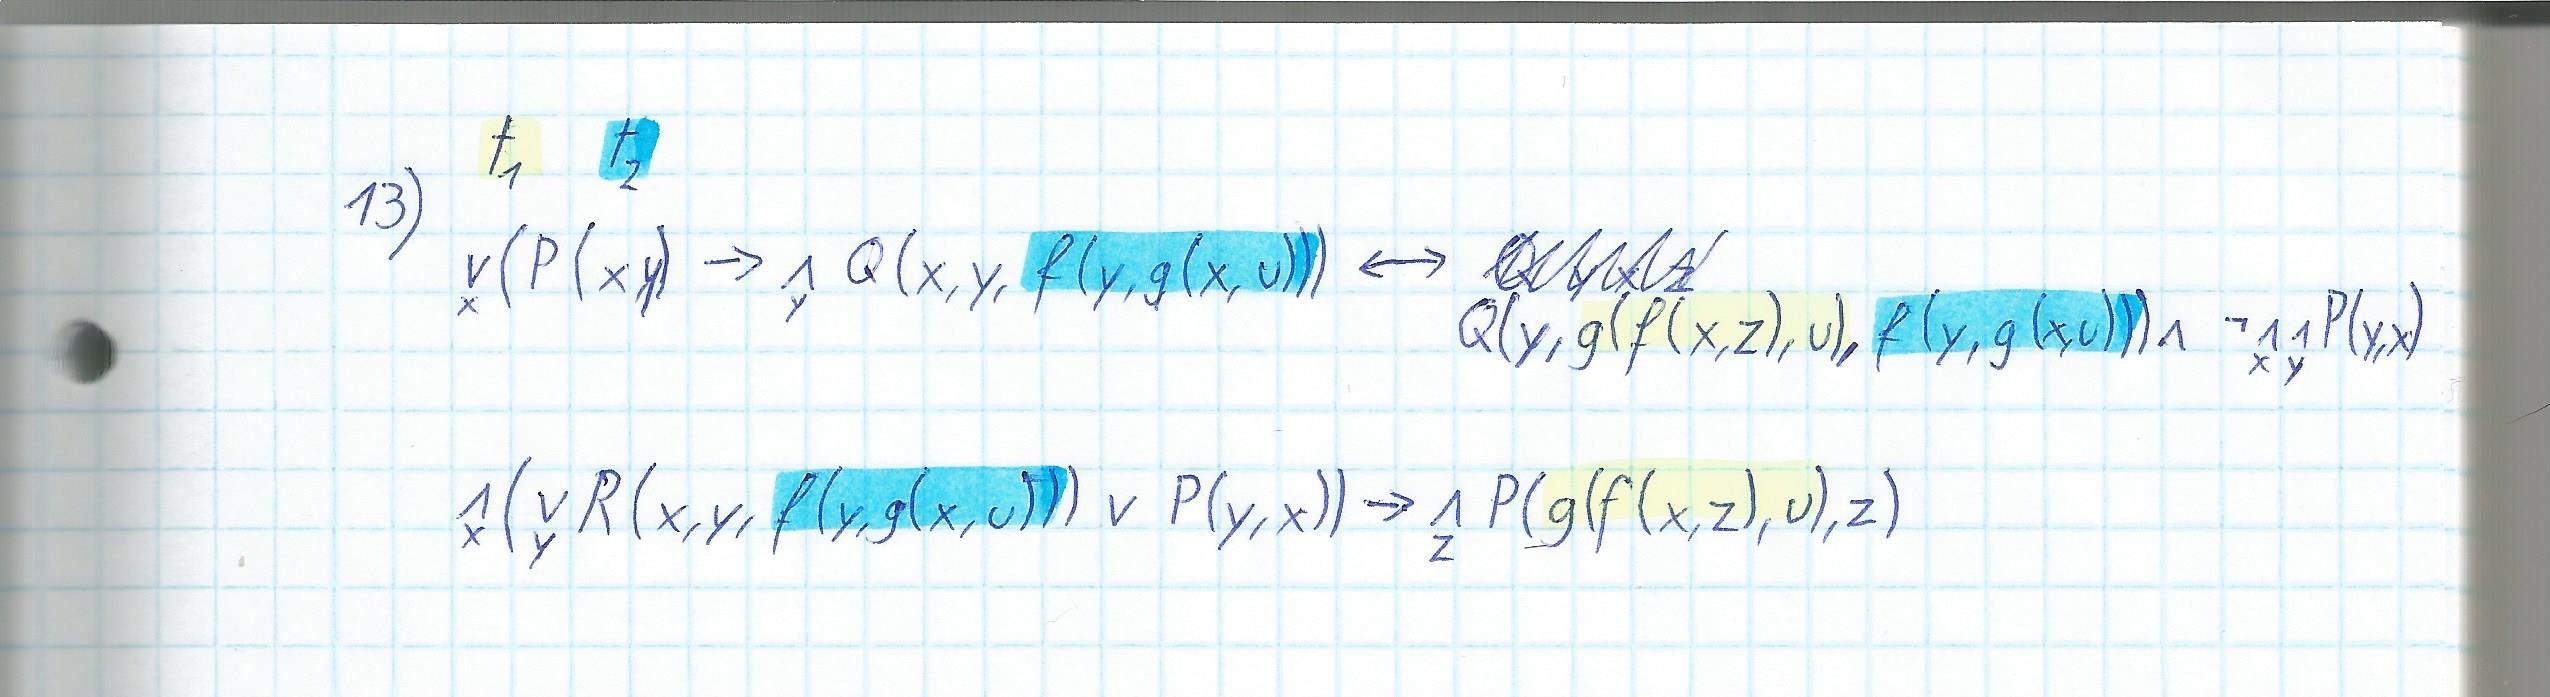 t₁ t₂
13)
∨ₓ(P(x,y) → ∧ᵧ Q(x,y,f(y,g(x,u))) ↔
Q(y,g(f(x,z),u),f(y,g(x,u))) ∧ ¬∧ₓ∧ᵧP(y,x)
∧ₓ(∨ᵧR(x,y,f(y,g(x,u))) ∨ P(y,x)) → ∧_z P(g(f(x,z),u),z)